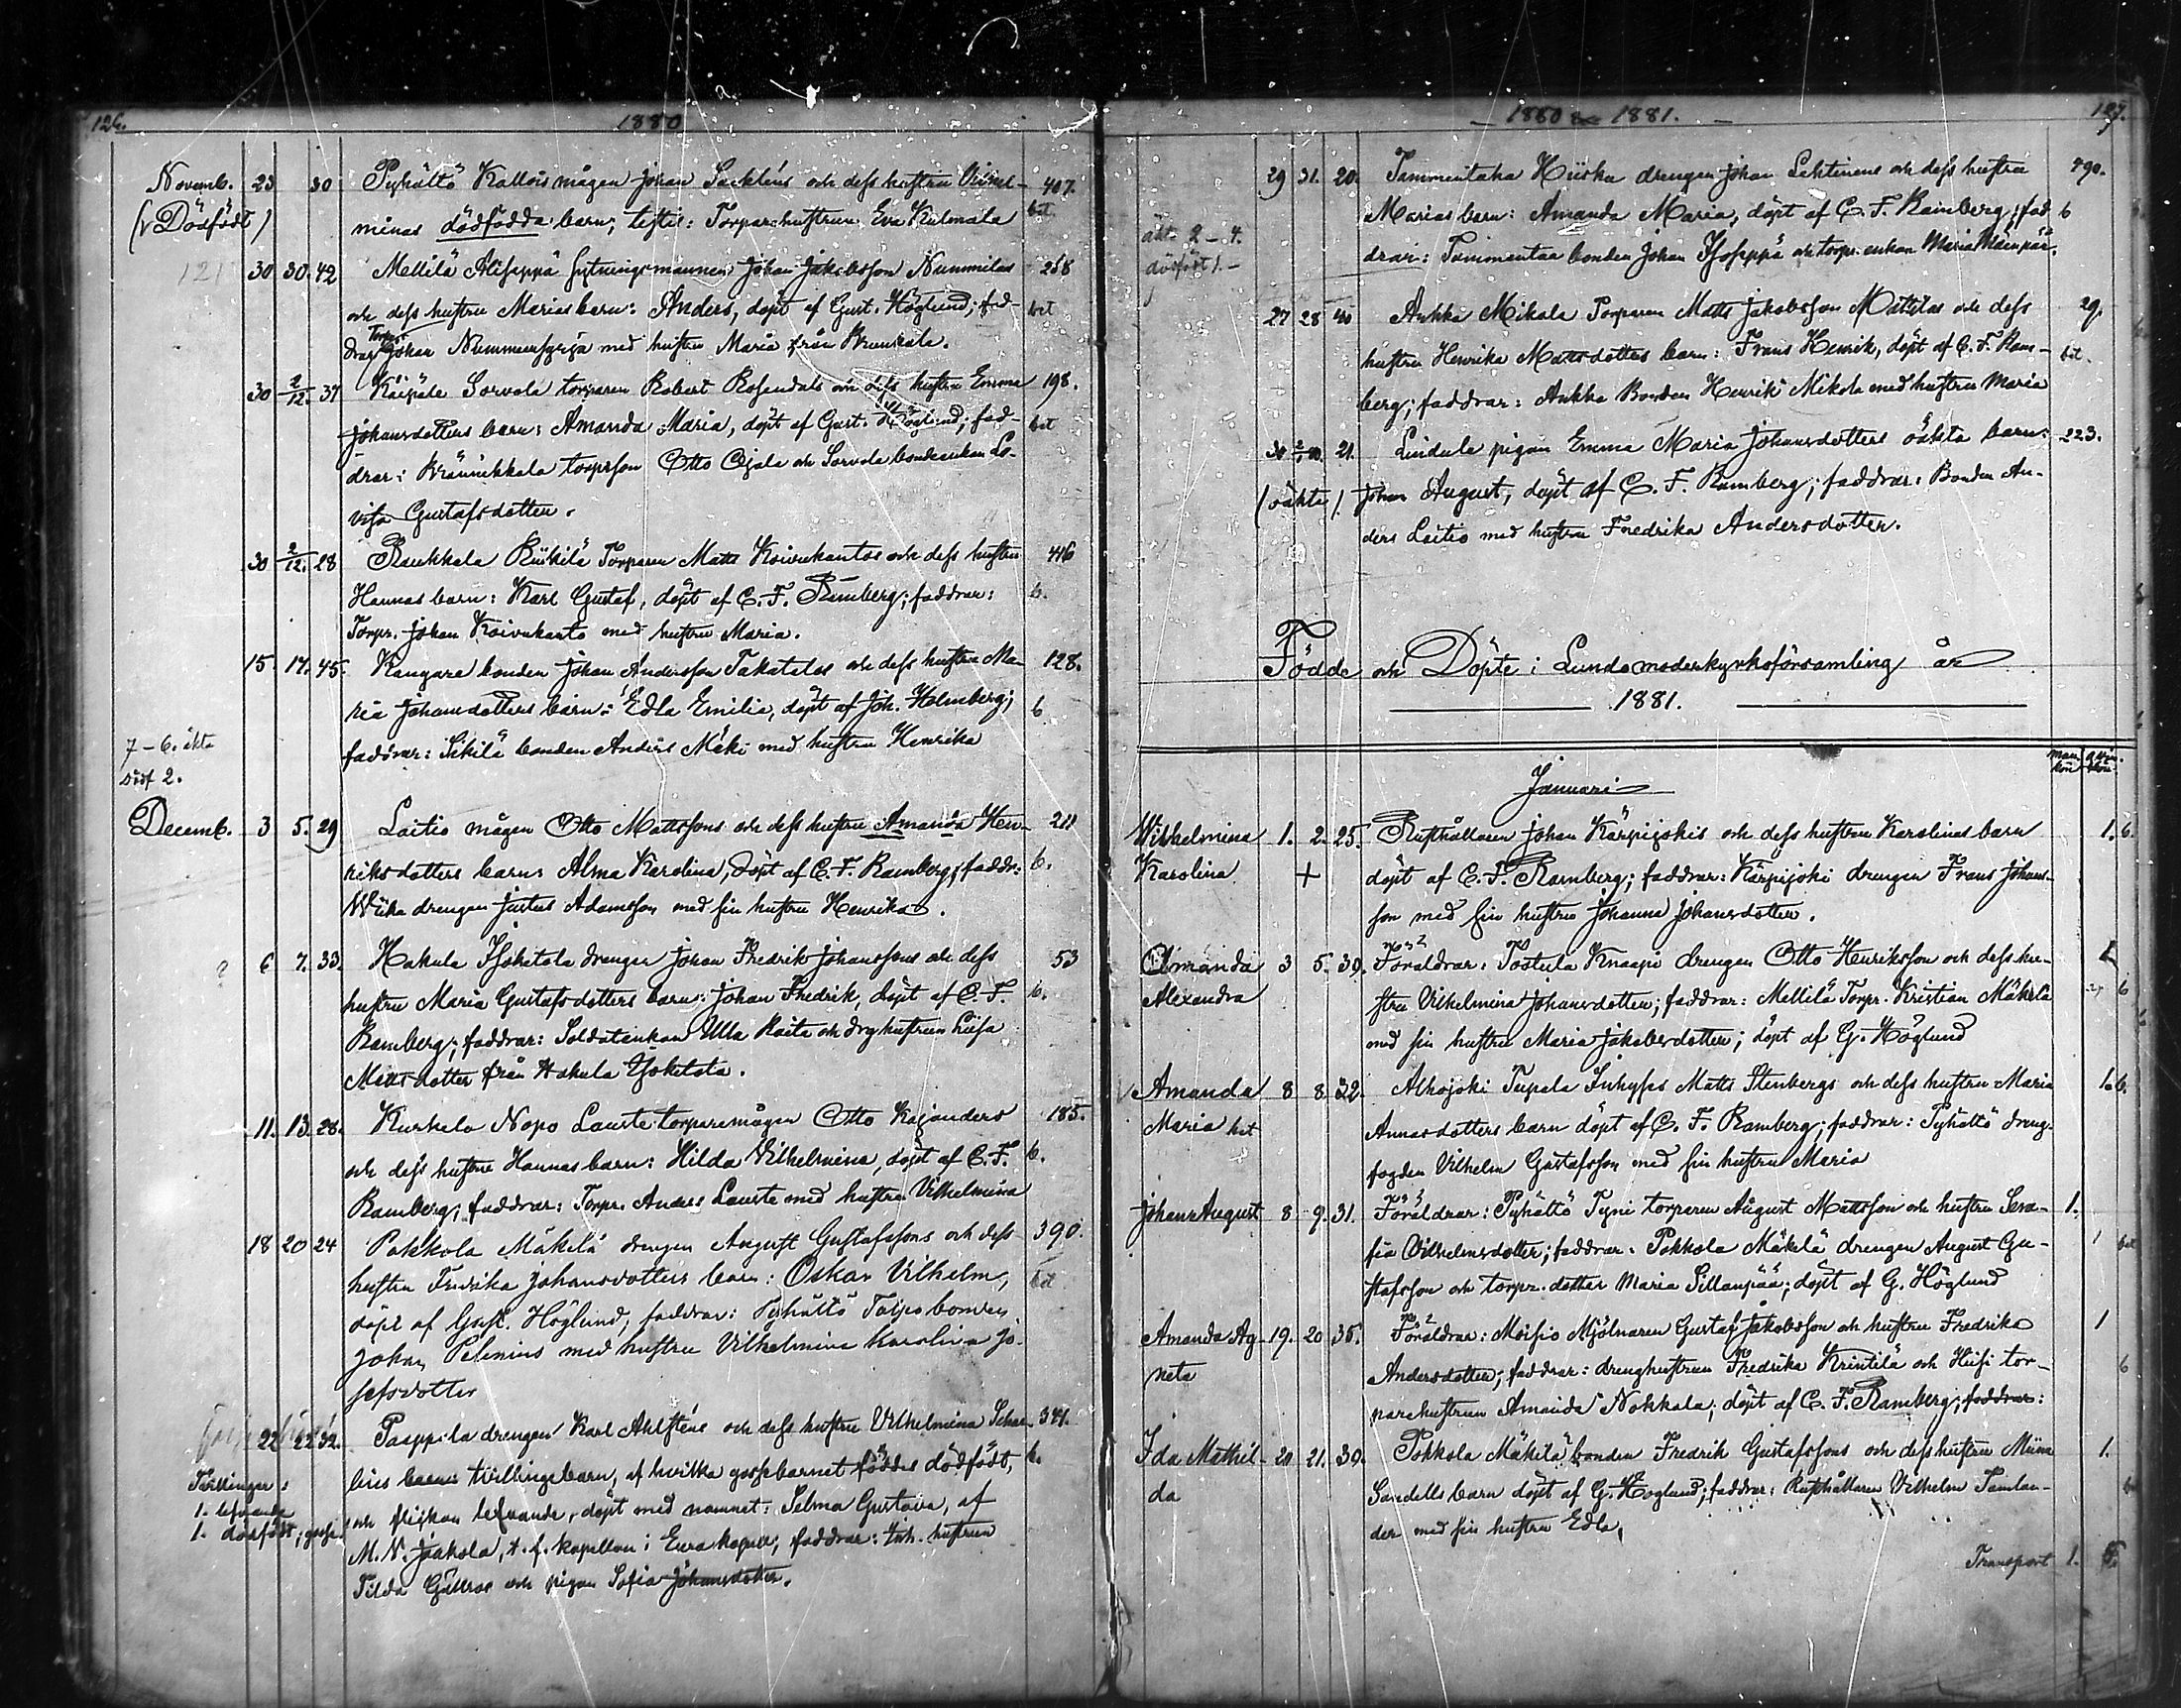 126. 1880
Novemb. 23 30 Pyhältö Kallois mågen Johan Sacklèns och dess hustru Vilhel- 407.
(1 Dödfödt) minas dödfödda barn; testis: Torparehustrun Eva Kulmala bet
30 30. 42 Mellilä Aliseppä hytningsmannen Johan Jakobsson Nummilas 258
och dess hustru Marias barn: Anders, döpt af Gust. Höglund; fad- bet
drar Torp. Johan Nummensyrjä med hustru Maria från Krunkala.
30 2/12. 37 Käspäle Sorvola torparen Robert Rosendals och dess hustru Emma 198.
Johansdotters barn: Amanda Maria, döpt af Gust. Höglund; fad- bet
drar: Krännikkala torpson Otto Ojala och Sorvola bondeenkan Lo-
visa Gustafsdotter.
30 2/12. 28 Raukkala Riikilä Torparen Matts Koivukantos och dess hustru 446
Hannas barn: Karl Gustaf, döpt af C. F. Ramberg; faddrar: b.
Torpr. Johan Koivukanto med hustru Maria.
15. 17. 45. Kangare bonden Johan Andersson Takatalos och dess hustru Ma- 128.
ria Johansdotters barn: Edla Emilia, döpt af Joh. Holmberg; b
faddrar: Sikilä bonden Anders Mäki med hustru Henrika
7-6. äkta
död 2.
Decemb. 3 5. 29 Laitio mågen Otto Mattssons och dess hustru Amanda Hen- 211
riksdotters barn: Alma Karolina, döpt af C. F. Ramberg; faddr: b.
drengen Justus Adamsson med sin hustru Henrika.
6 7. 33. Hakula Isoketola drengen Johan Fredrik Johanssons och dess 53
hustru Maria Gustafsdotters barn: Johan Fredrik, döpt af C. F. b.
Ramberg; faddrar: Soldatenkan Ulla Raita och drghustrun Lisa
Mattsdotter från Hakula Isoketola.
11. 13. 28. Kurkela Nopo Laurte torparemågen Otto Kajanders 185.
och dess hustru Hannas barn: Hilda Vilhelmina, döpt af C. F. b.
Ramberg; faddrar: Torpr. Anders Laurte med hustru Vilhelmina
18 20 24 Pokkola Mäkilä drengen August Gustafssons och dess 390.
hustru Fredrika Johansdotters barn: Oskar Vilhelm, bet
döpt af Gust. Höglund, faddrar: Pyhältö Talpo bonden
Johan Pelenius med hustru Vilhelmina Karolina Jo-
sefsdotter
22 22 32. Paappila drengen Karl Ahlstèns och dess hustru Vilhelmina 341.
barns tvillingebarn, af hvilka gossebarnet föddes dödfödt, b.
Tvillingar: och flickan lefvande, döpt med namnet: Selma Gustava, af
1. lefvande
1. dödfödt, gosse. M. V. Jaakola, t. f. kapellan i Eura kapell, faddrar: inh. hustrun
Tilda Gällros och pigan Sofia Johansdotter.
1880 1881. 127.
29 31. 20. Tammentaka Hiiska drengen Johan Lehtinens och dess hustru 490.
Marias barn: Amanda Maria, döpt af C. F. Ramberg; fad b
äkt. 2-4.
dödfödt 1.- drar: Tammentaa bonden Johan Isoseppä och torpr. enkan Maria Männpää.
27 28 40 Ankka Mikola Torparen Matts Jakobsson Mattilas och dess 29.
hustru Henrika Mattsdotters barn: Frans Henrik, döpt af C. F. Ram- bet.
berg; faddrar: Ankka Bonden Henrik Mikola med hustru Maria
21. Lindula pigan Emma Maria Johansdotters oäkta barn: 223.
(oäkta). Johan August, döpt af C. F. Ramberg; faddrar: Bonden An-
ders Laitio med hustru Fredrika Andersdotter.
Födde och Döpte i Lundo moderkyrkoförsamling år
1881.
Januari man kön qvin. kön
Wilhelmina 1. 2. 25. Rusthållaren Johan Kärpijokis och dess hustru Karolinas barn 1. b.
Karolina + döpt af C. F. Ramberg; faddrar: Kärpijoki drengen Frans Johans-
son med sin hustru Johanna Johansdotter.
Amanda 3 5. 39. Föräldrar: Tostula Knaapi drengen Otto Henriksson och dess hu- 1
Alexandra stru Vilhelmina Johansdotter; faddrar: Mellilä Torpr. Kristian Mäkelä b
med sin hustru Maria Jakobsdotter; döpt af G. Höglund
Amanda 8 8. 32. Alhojoki Tupala Inhyses Matts Stenbergs och dess hustru Maria 1. b.
Maria bet Annasdotters barn döpt af C. F. Ramberg; faddrar: Pyhältö dreng-
fogden Vilhelm Gustafsson med sin hustru Maria
Johan August 8 9. 31. Föräldrar: Pyhältö Tyni torparen August Mattsson och hustru Sera- 1.
fia Vilhelmsdotter; faddrar: Pokkola Mäkelä drengen August Gu- 1 bet
stafsson och torpr. dotter Maria Sillanpää; döpt af G. Höglund
Amanda Ag- 19. 20 35. Föräldrar: Moisio Mjölnaren Gustaf Jakobsson och hustru Fredrika 1
neta Andersdotter; faddrar: drenghustrun Fredrika Krintilä och Hiisi tor- b
parehustrun Amanda Nokkala; döpt af C. F. Ramberg; faddrar:
Ida Mathil- 20 21. 39. Pokkola Mäkilä bonden Fredrik Gustafssons och dess hustru Miina 1.
da Sandells barn döpt af G. Höglund; faddrar: Rusthållaren Vilhelm Tamlan-
der med sin hustru Edla,
Transport 1. 5.